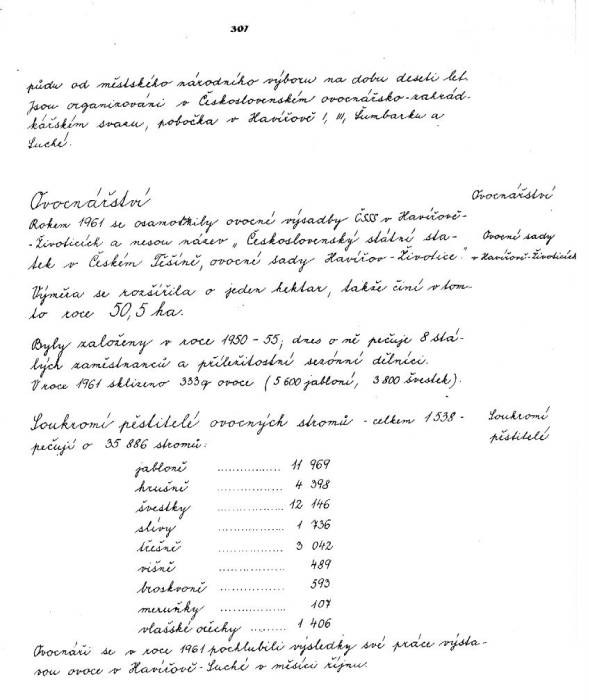 307
půdu od městského národního výboru na dobu deseti let.
Jsou organizováni v Československém ovocnářsko-zahrád-
kářském svazu, pobočka v Havířově I, III, Šumbarku a
Suché.
Ovocnářství
Ovocnářství
Rokem 1961 se osamotnily ovocné výsadby ČSSS v Havířově-
-Životicích a nesou název „Československý státní sta-
tek v Českém Těšíně, ovocné sady Havířov-Životice."
Ovocné sady
v Havířově-Životicích
Výměra se rozšířila o jeden hektar, takže činí v tom-
to roce 50,5 ha.
Byly založeny v roce 1950-55; dnes o ně pečuje 8 stá-
lých zaměstnanců a příležitostní sezónní dělníci.
V roce 1961 sklizeno 333 q ovoce (5 600 jabloní, 3 800 švestek).
Soukromí pěstitelé ovocných stromů - celkem 1 538 -
pečují o 35 886 stromů:
Soukromí
pěstitelé
jabloně .................. 11 969
hrušně .................. 4 398
švestky .................. 12 146
slívy .................. 1 736
třešně .................. 3 042
višně .................. 489
broskvoně .................. 593
meruňky .................. 107
vlašské ořechy ......... 1 406
Ovocnáři se v roce 1961 pochlubili výsledky své práce výsta-
vou ovoce v Havířově-Suché v měsíci říjnu.